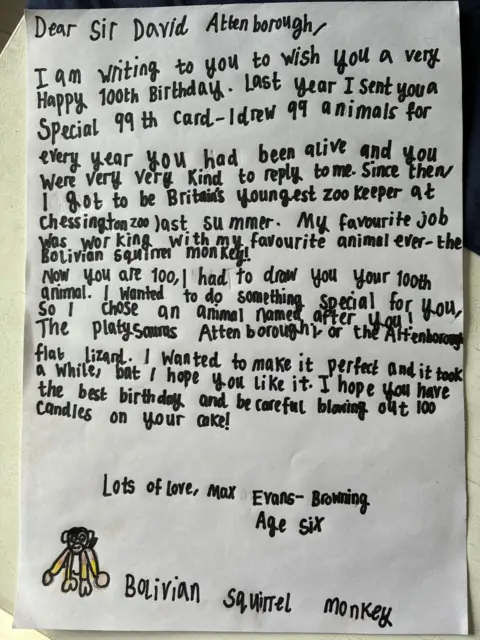 Dear Sir David Attenborough,
I am writing to you to wish you a very
Happy 100th Birthday. Last year I sent you a
Special 99th card - I drew 99 animals for
every year you had been alive and you
were very very kind to reply to me. Since then,
I got to be Britain's youngest zoo keeper at
Chessington zoo last summer. My favourite job
was working with my favourite animal ever - the
Bolivian squirrel monkey!
Now you are 100, I had to draw you your 100th
animal. I wanted to do something special for you,
So I chose an animal named after you!
The Platysaurus Attenboroughi, or the Attenborough
flat lizard. I wanted to make it perfect and it took
a while, but I hope you like it. I hope you have
the best birthday and be careful blowing out 100
candles on your cake!
Lots of love, Max Evans-Browning
Age six
Bolivian squirrel monkey